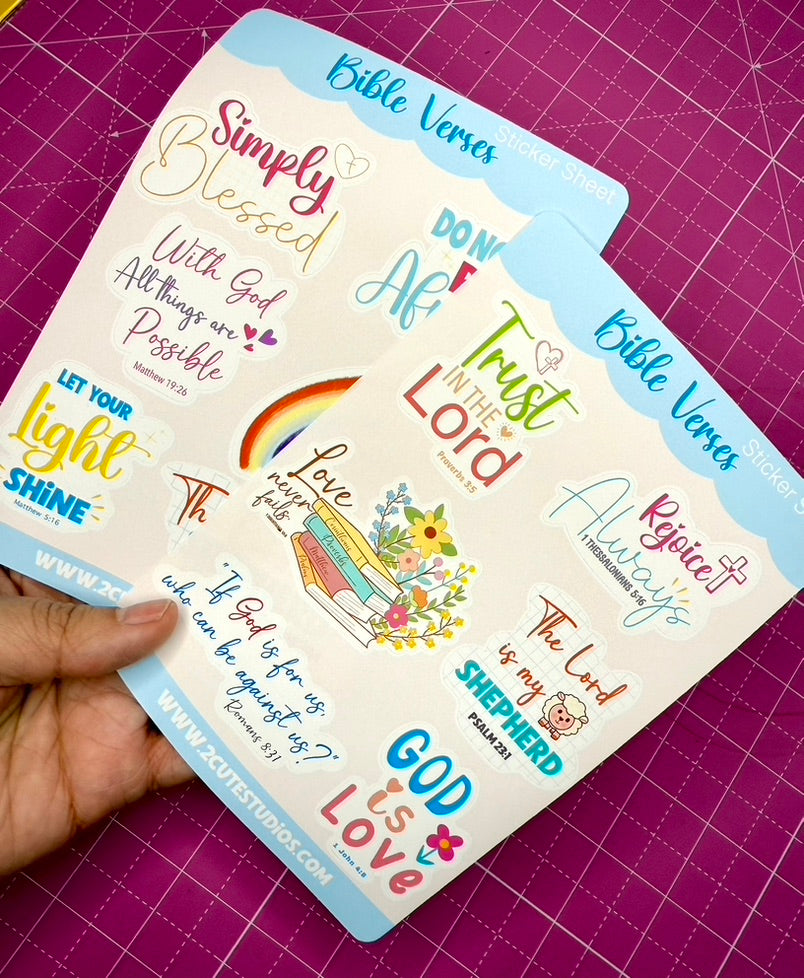 Bible Verses
Sticker Sheet
Simply
Blessed
DO NO
Af
With God
All things are
Possible
Matthew 19:26
LET YOUR
Light
SHiNE
Matthew 5:16
Th
WWW.2
Bible Verses
Sticker S
Trust
IN THE
Lord
Proverbs 3:5
Love
never
fails.
Proverbs
Matthew
Rejoice
Always
1 THESSALONIANS 5:16
"If God is for us,
who can be against us?"
Romans 8:31
The Lord
is my
SHEPHERD
PSALM 23:1
GOD
is
Love
1 John 4:8
WWW.2CUTESTUDIOS.COM